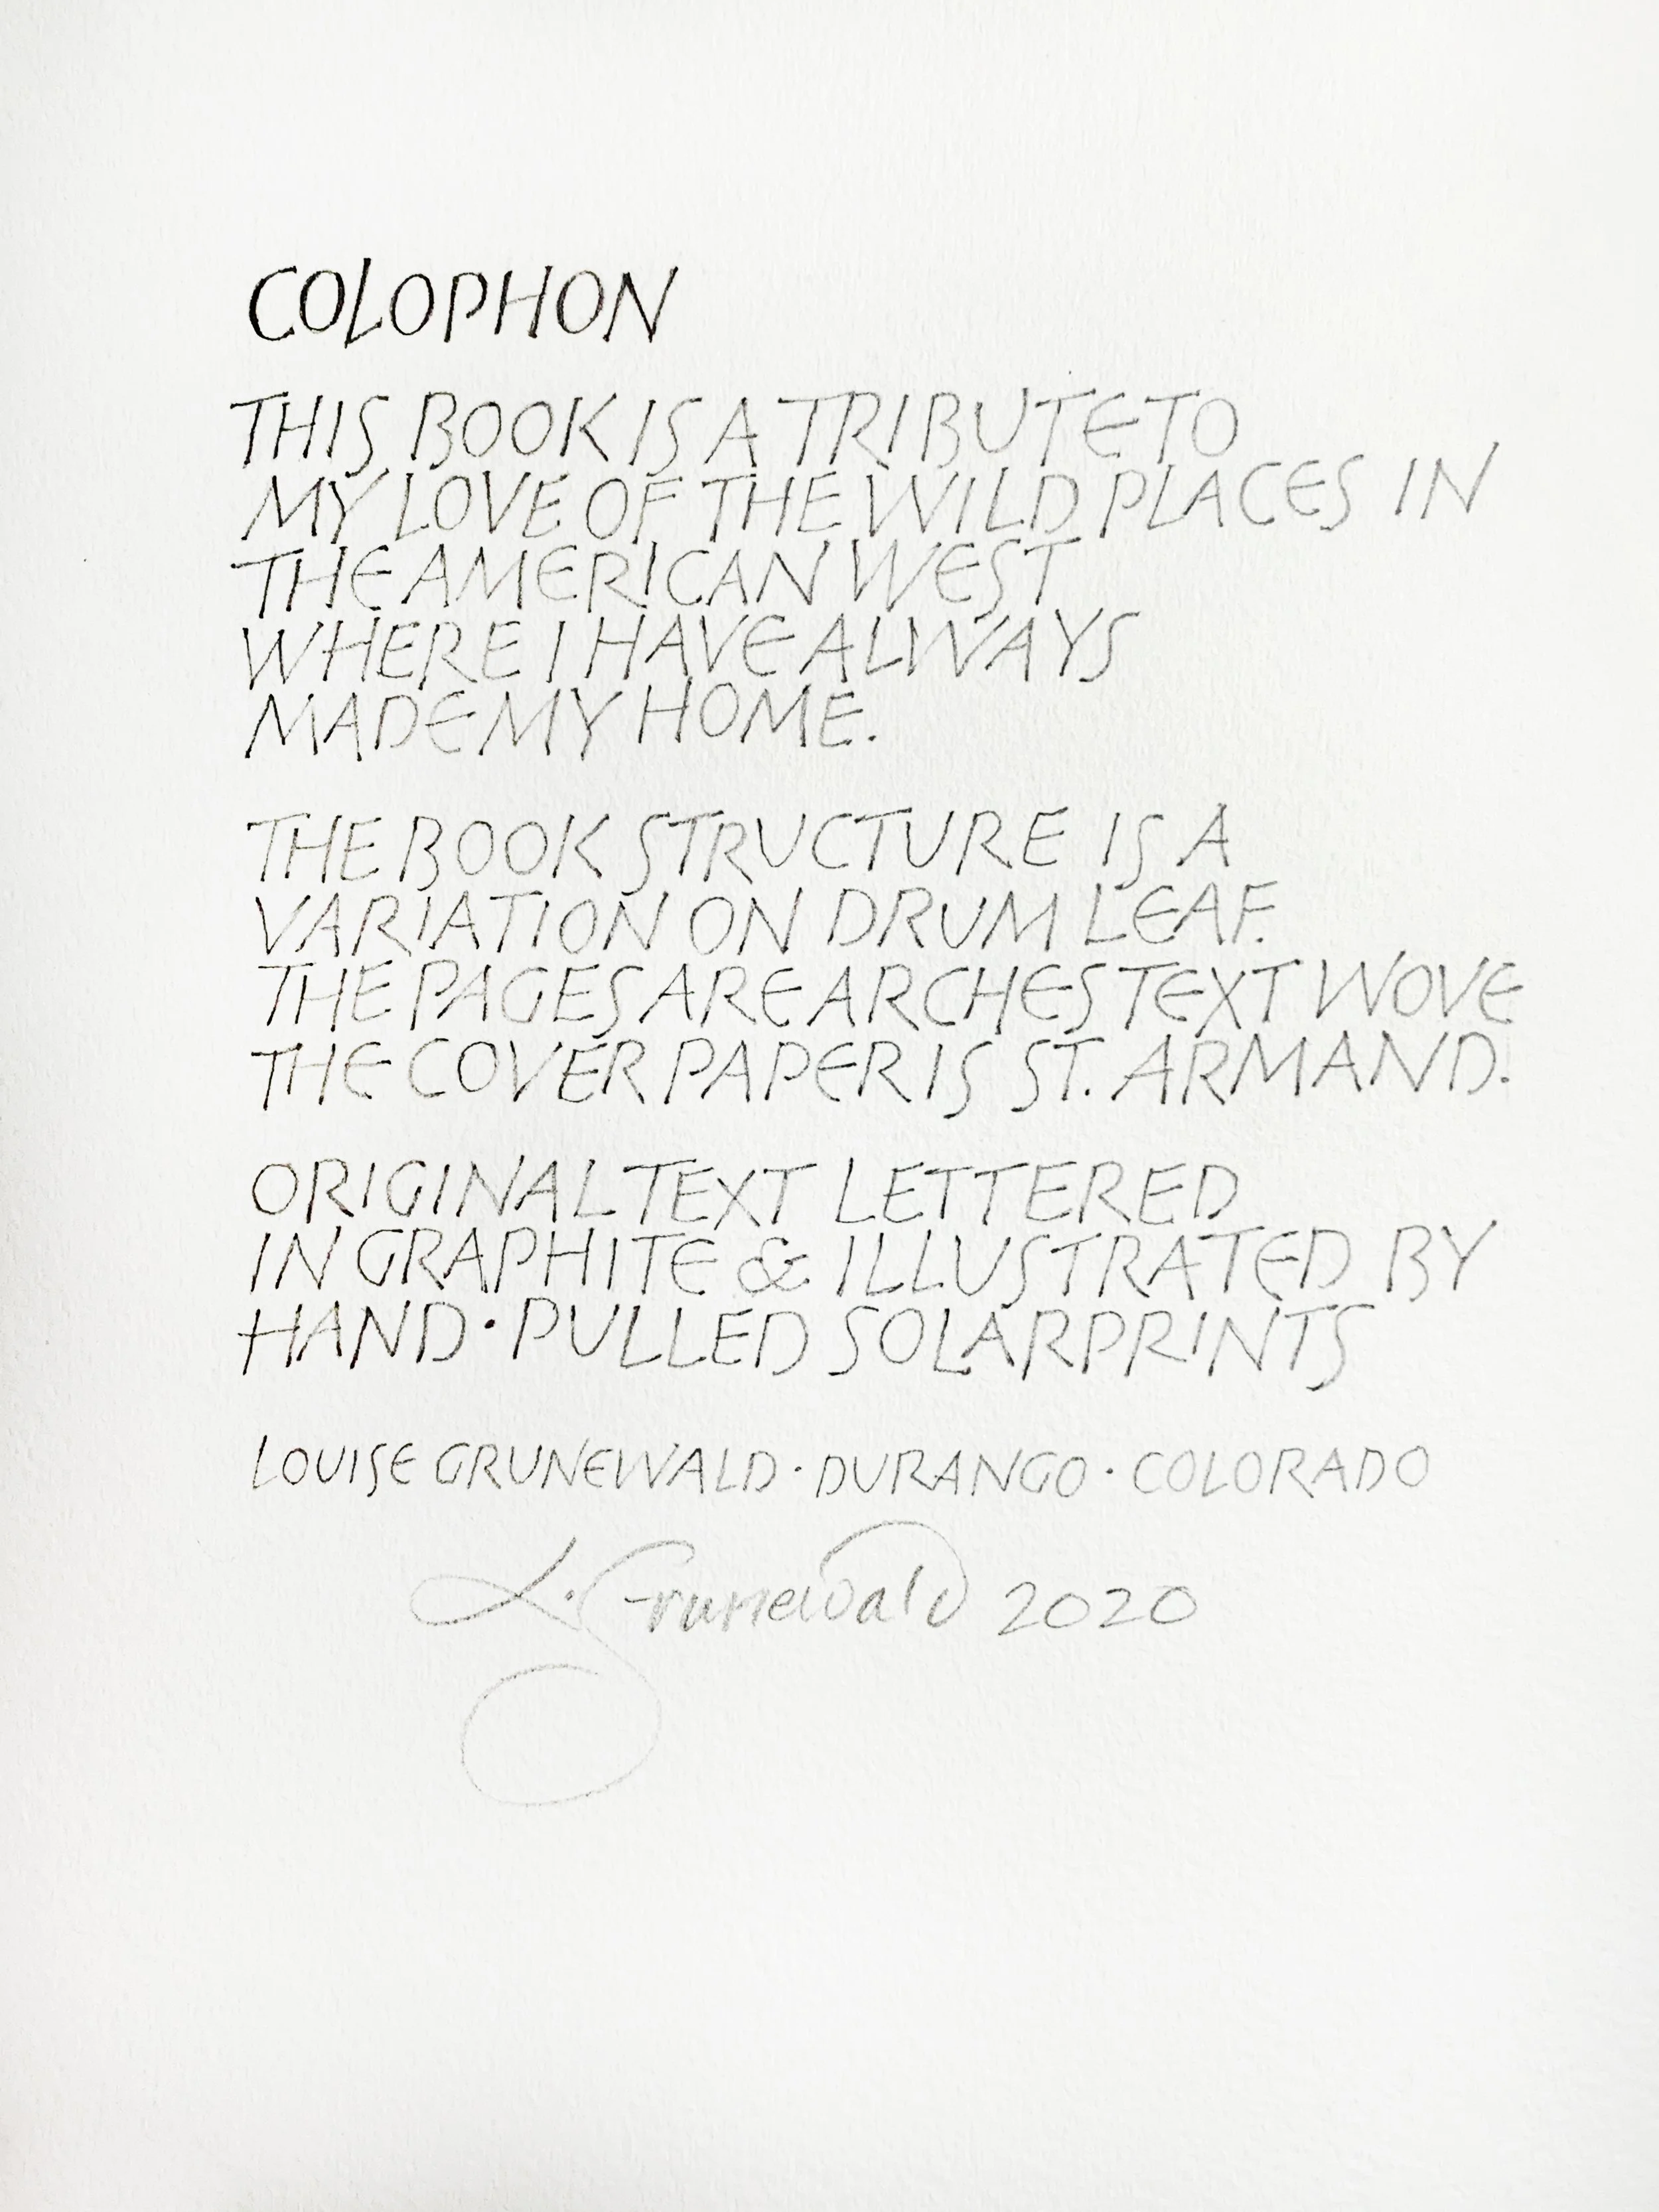 COLOPHON
THIS BOOK IS A TRIBUTE TO
MY LOVE OF THE WILD PLACES IN
THE AMERICAN WEST
WHERE I HAVE ALWAYS
MADE MY HOME.
THE BOOK STRUCTURE IS A
VARIATION ON DRUM LEAF.
THE PAGES ARE ARCHES TEXT WOVE
THE COVER PAPER IS ST. ARMAND.
ORIGINAL TEXT LETTERED
IN GRAPHITE & ILLUSTRATED BY
HAND·PULLED SOLARPRINTS
LOUISE GRUNEWALD · DURANGO · COLORADO
L. Grunewald 2020